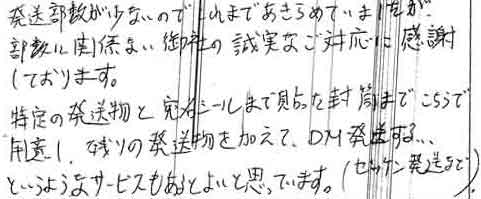 発送部数が少ないのでこれまであきらめていましたが、
部数に関係ない御社の誠実なご対応に感謝
しております。
特定の発送物と宛名シールまで貼った封筒までこちらで
用意し、残りの発送物を加えて、DM発送する…
というようなサービスもあるとよいと思っています。(セッケン発送など)